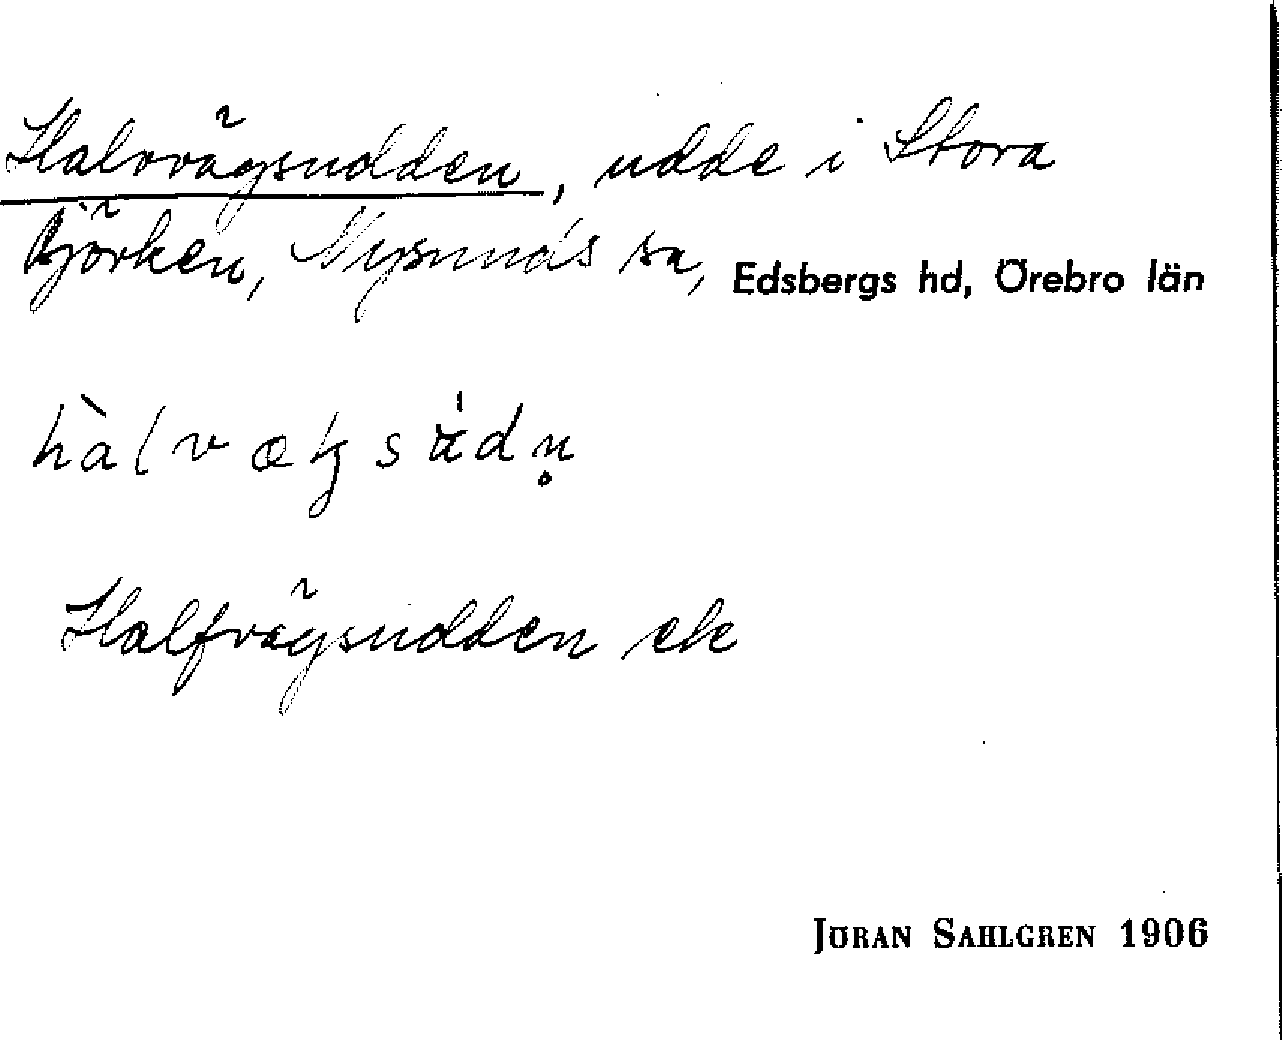 Halvvägsudden, udde i Stora
Björken, Nysunds sn, Edsbergs hd, Örebro län
Halfvägsudden ek
JÖRAN SAHLGREN 1906